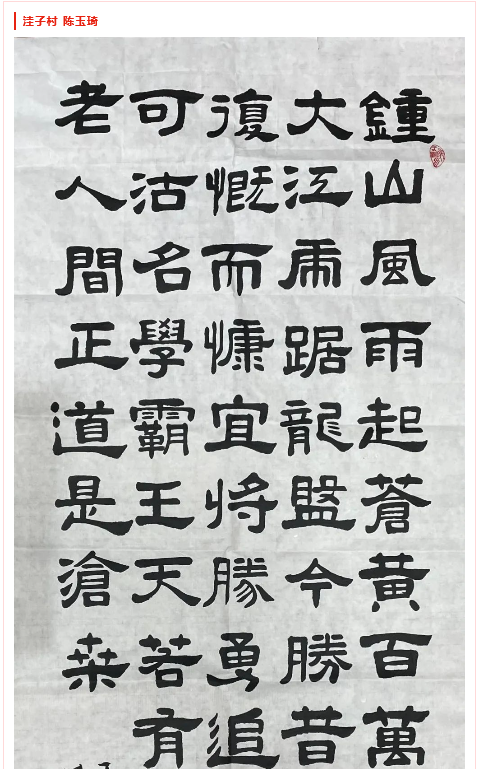 洼子村 陈玉琦
鍾山風雨起蒼黄百萬
大江虎踞龍盤今勝昔
復慨而慷宜将勝勇追
可沽名學霸王天若有
老人間正道是滄桒